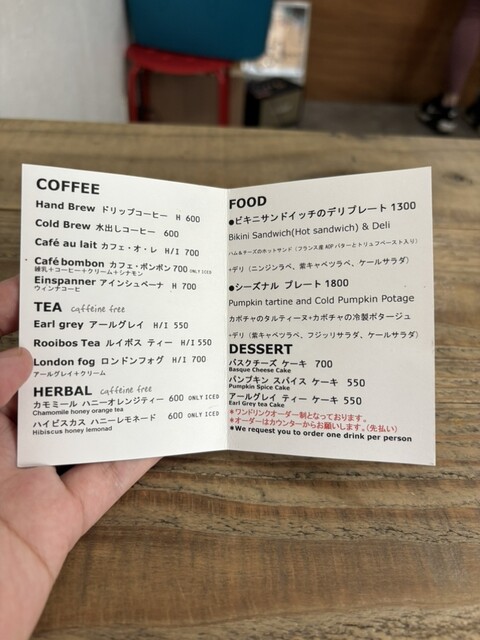 COFFEE
Hand Brew ドリップコーヒー H 600
Cold Brew 水出しコーヒー 600
Café au lait カフェ・オ・レ H/I 700
Café bombon カフェ・ボンボン 700 ONLY ICED
練乳+コーヒー+クリーム+シナモン
Einspanner アインシュペーナ H 700
ウィンナコーヒ
TEA caffeine free
Earl grey アールグレイ H/I 550
Rooibos Tea ルイボス ティー H/I 550
London fog ロンドンフォグ H/I 700
アールグレイ+クリーム
HERBAL caffeine free
カモミール ハニーオレンジティー 600 ONLY ICED
Chamomile honey orange tea
ハイビスカス ハニーレモネード 600 ONLY ICED
Hibiscus honey lemonad
FOOD
●ビキニサンドイッチのデリプレート 1300
Bikini Sandwich(Hot sandwich) & Deli
ハム&チーズのホットサンド(フランス産AOPバターとトリュフペースト入り)
+デリ(ニンジンラペ、紫キャベツラペ、ケールサラダ)
●シーズナル プレート 1800
Pumpkin tartine and Cold Pumpkin Potage
カボチャのタルティーヌ+カボチャの冷製ポタージュ
+デリ(紫キャベツラペ、フジッリサラダ、ケールサラダ)
DESSERT
バスクチーズ ケーキ 700
Basque Cheese Cake
パンプキン スパイス ケーキ 550
Pumpkin Spice Cake
アールグレイ ティー ケーキ 550
Earl Grey tea Cake
*ワンドリンクオーダー制となっております。
*オーダーはカウンターからお願いします。(先払い)
●We request you to order one drink per person